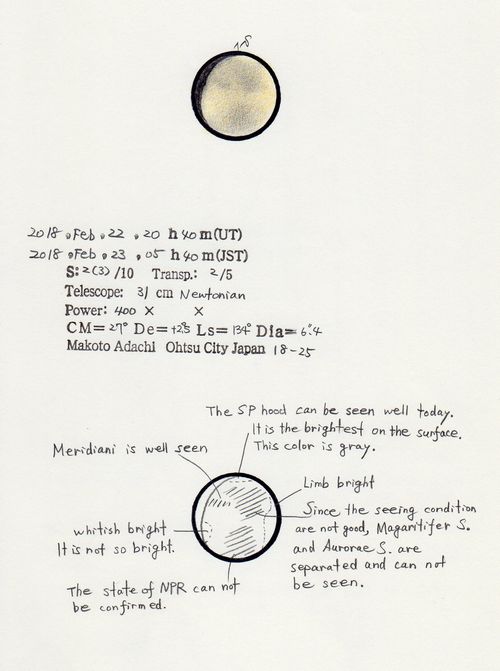 S
2018 . Feb . 22 . 20 h 40 m(UT)
2018 . Feb . 23 . 05 h 40 m(JST)
S: 2(3) /10 Transp.: 2/5
Telescope: 31 cm Newtonian
Power: 400 × ×
CM= 27° De= +2.°5 Ls= 134° Dia= 6."4
Makoto Adachi Ohtsu City Japan 18-25
The SP hood can be seen well today.
It is the brightest on the surface.
This color is gray.
Meridiani is well seen
Limb bright
Since the seeing condition
are not good, Magaritifer S.
and Aurorae S. are
separated and can not
be seen.
whitish bright
It is not so bright.
The state of NPR can not
be confirmed.